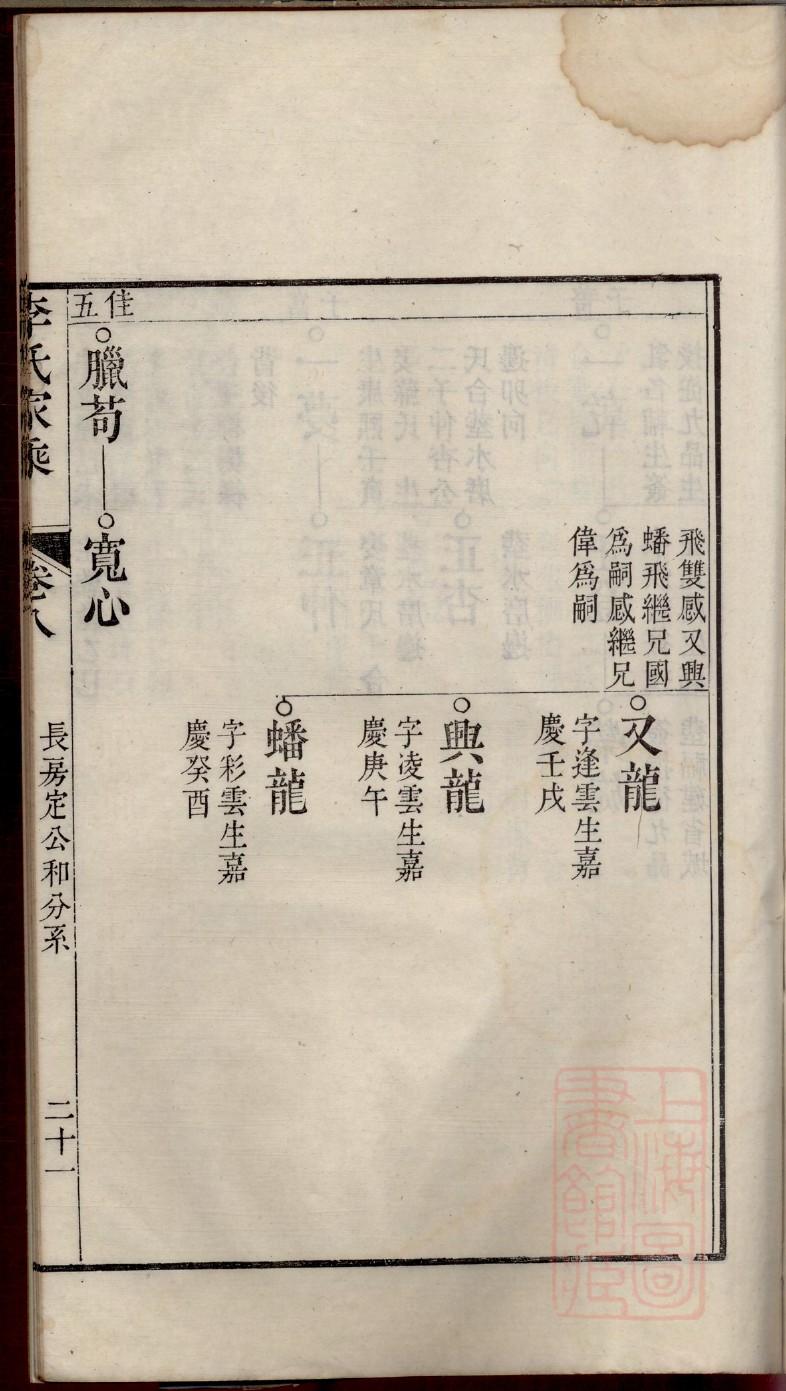 飛雙感又興
蟠飛繼兄國
為嗣感繼兄
偉為嗣
又龍
字逢雲生嘉
慶壬戌
興龍
字凌雲生嘉
慶庚午
蟠龍
字彩雲生嘉
慶癸酉
佳五
臘苟
寬心
李氏家乘
卷八
長房定公和分系
二十一
上海圖
書館藏